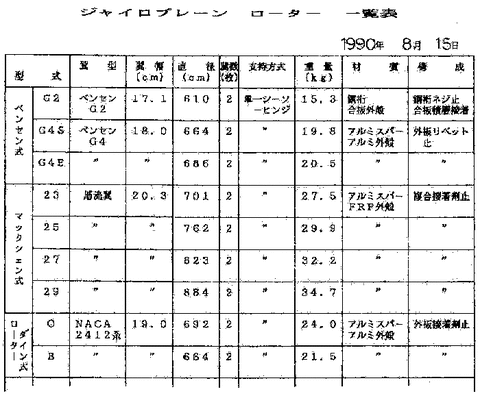 ジャイロプレーン ローター 一覧表
1990年 8月 15日
型式 翼型 翼幅(cm) 直径(cm) 翼数(枚) 支持方式 重量(kg) 材質 構成
ベンセン式 G2 ベンセンG2 17.1 610 2 単一シーソーヒンジ 15.3 鋼桁合板外殻 鋼桁ネジ止合板積層接着
G4S ベンセンG4 18.0 664 2 〃 19.8 アルミスパーアルミ外殻 外板リベット止
G4E 〃 〃 686 2 〃 20.5 〃 〃
マックシェン式 23 層流翼 20.3 701 2 〃 27.5 アルミスパーFRP外殻 複合接着剤止
25 〃 〃 762 2 〃 29.9 〃 〃
27 〃 〃 823 2 〃 32.2 〃 〃
29 〃 〃 884 2 〃 34.7 〃 〃
ローターダイン式 NACA2412系 19.0 692 2 〃 24.0 アルミスパーアルミ外殻 外板接着剤止
B 〃 〃 664 2 〃 21.5 〃 〃